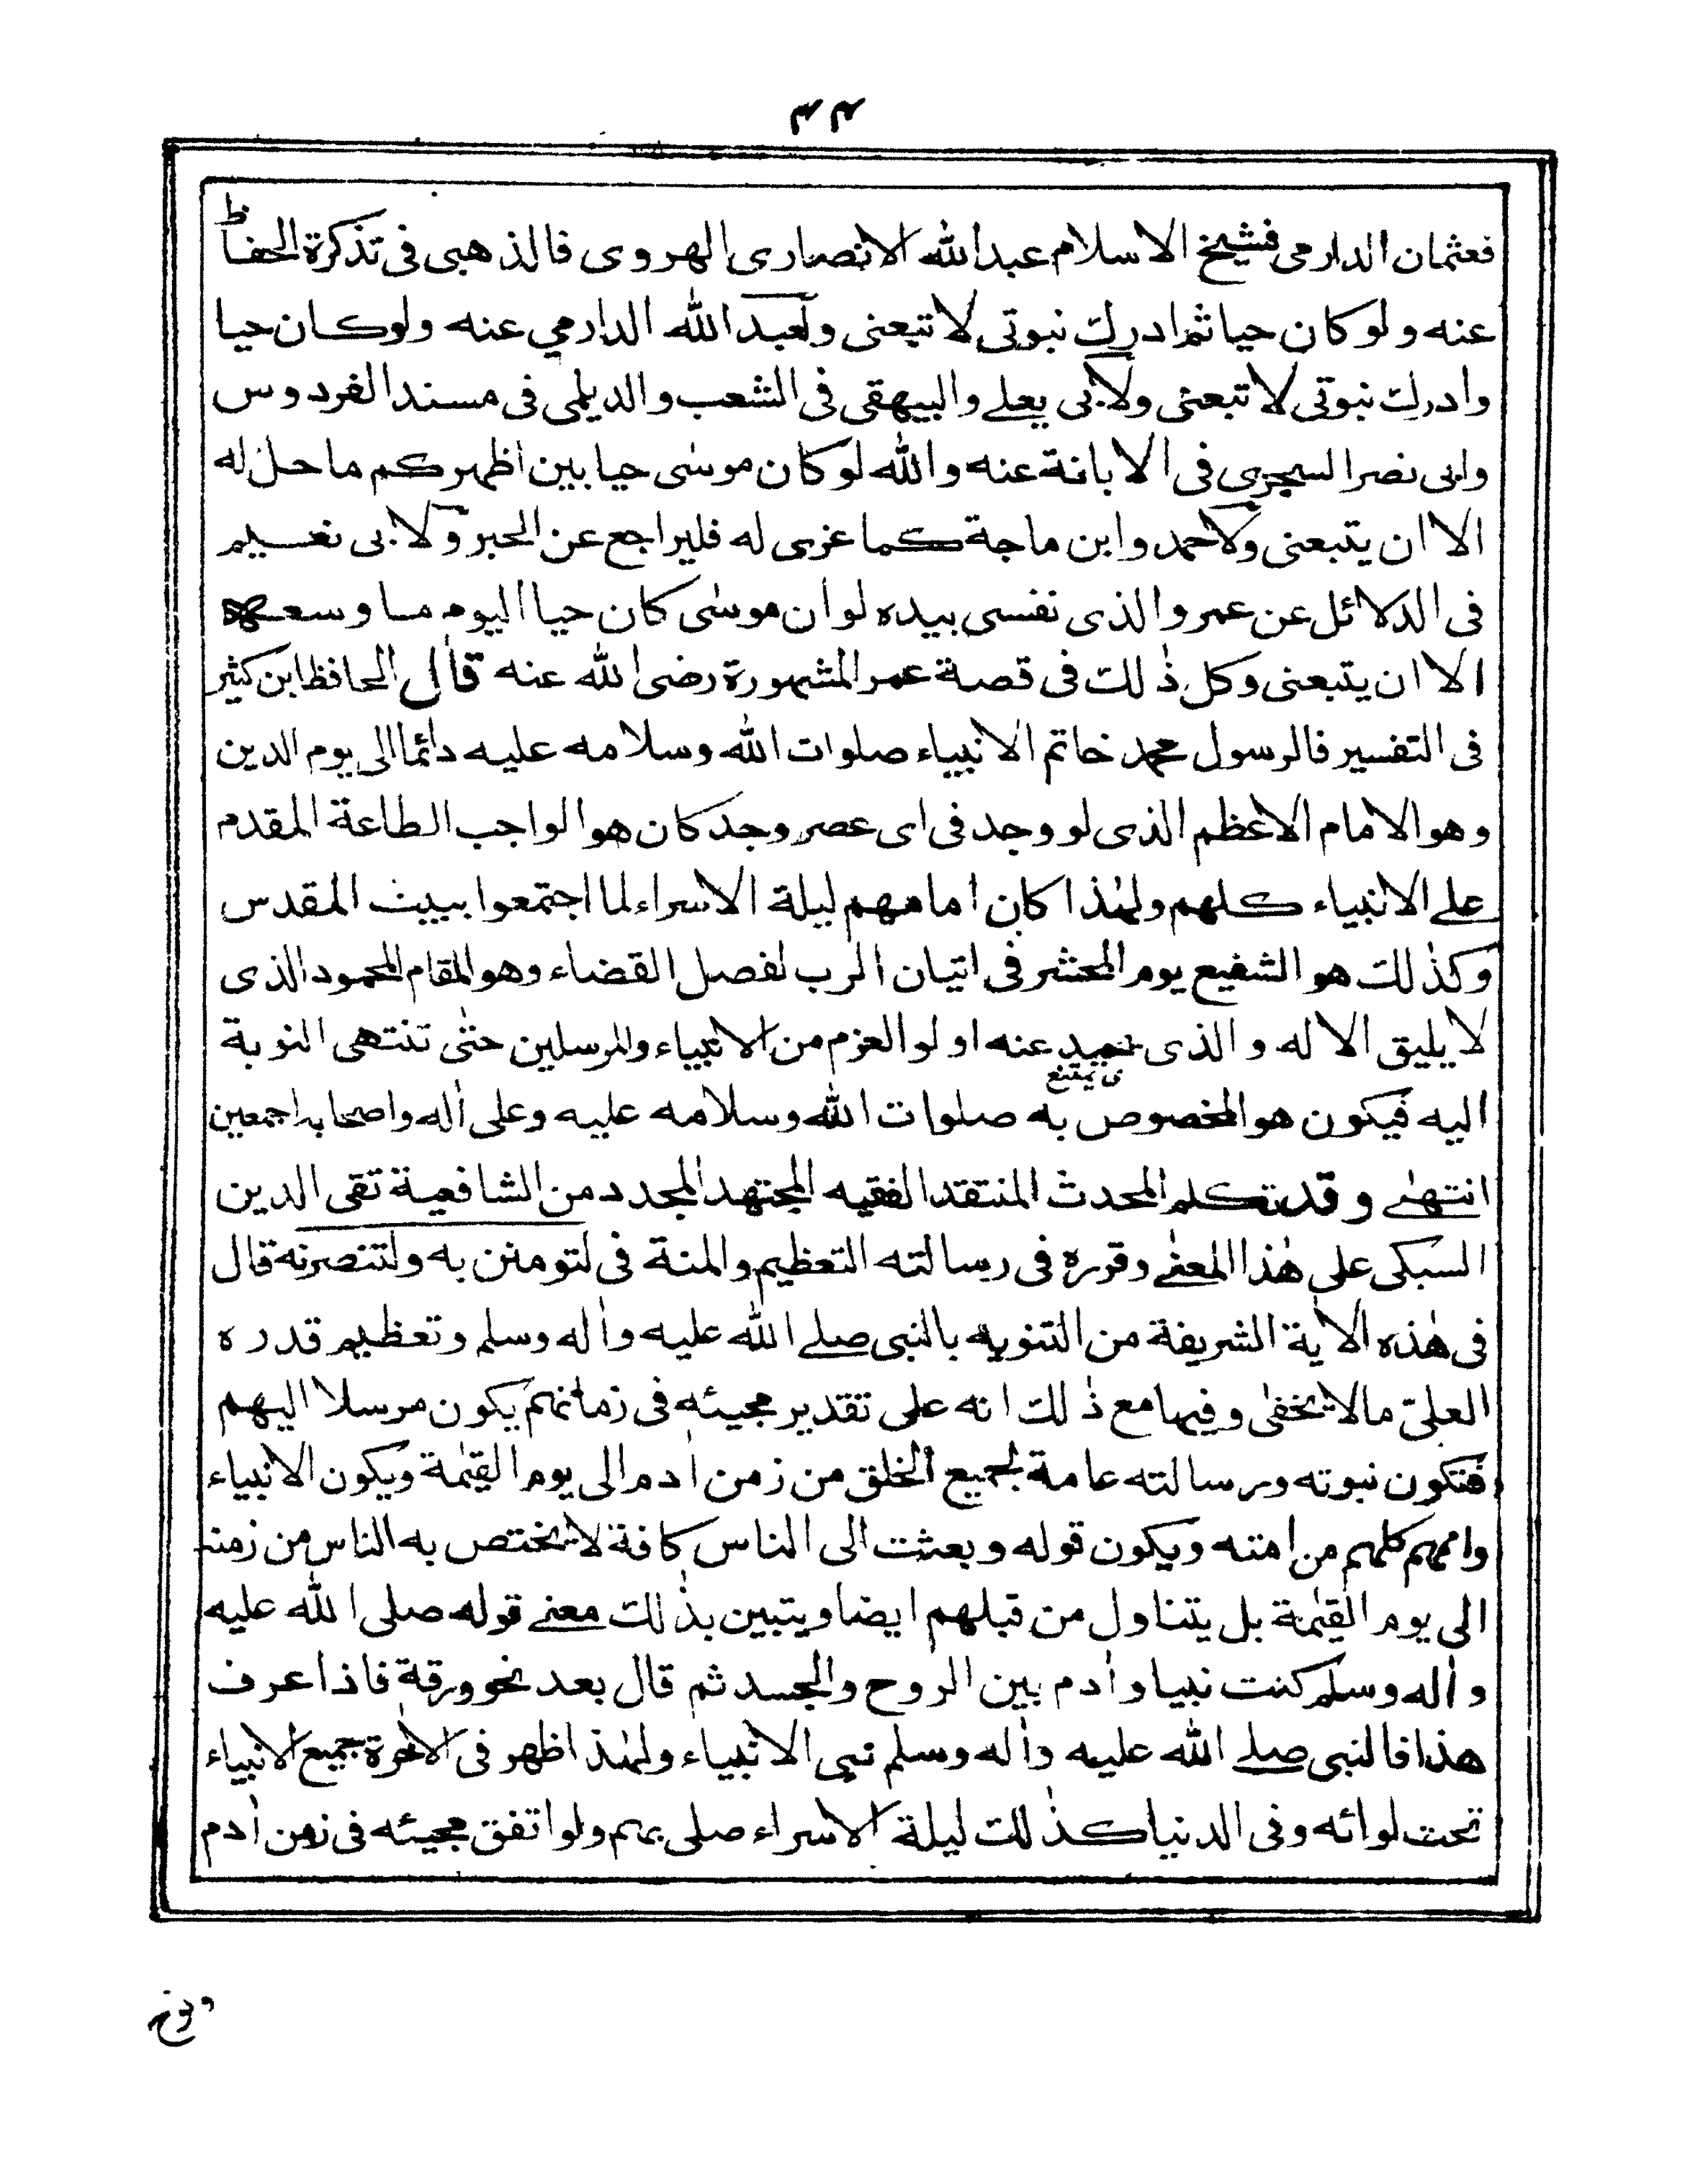 ٣٢
فعثمان الدارمی فشیخ الاسلام عبدالله الانصاری الهروی فالذهبی فی تذکرة الحفاظ
عنه ولو کان حیا ثم ادرك نبوتی لاتبعنی ولعبدالله الدارمی عنه ولو کان حیا
وادرك نبوتی لاتبعنی ولابی یعلے والبیهقی فی الشعب والدیلمی فی مسند الفردوس
وابی نصر السجزی فی الابانة عنه والله لو کان موسٰی حیا بین اظهرکم ماحل له
الا ان یتبعنی ولاحمد وابن ماجة کما عزی له فلیراجع عن الحبر ولابی نعیم
فی الدلائل عن عمر والذی نفسی بیده لو ان موسٰی کان حیا الیوم ما وسعه
الا ان یتبعنی وکل ذٰلك فی قصة عمر المشهورة رضی الله عنه قال الحافظ ابن کثیر
فی التفسیر فالرسول محمد خاتم الانبیاء صلوات الله وسلامه علیه دائما الی یوم الدین
وهو الامام الاعظم الذی لو وجد فی ای عصر وجد کان هو الواجب الطاعة المقدم
علے الانبیاء کلهم ولهٰذا کان امامهم لیلة الاسراء لما اجتمعوا ببیت المقدس
وکذٰلك هو الشفیع یوم المحشر فی اتیان الرب لفصل القضاء وهو المقام المحمود الذی
لا یلیق الا له والذی یحید عنه اولو العزم من الانبیاء والمرسلین حتٰی تنتهی النوبة
ی یمتنع
الیه فیکون هو المخصوص به صلوات الله وسلامه علیه وعلی اٰله واصحابه اجمعین
انتهٰے وقد تکلم المحدث المنتقد الفقیه المجتهد المجدد من الشافعیة تقی الدین
السبکی علی هٰذا المعنٰے وقرره فی رسالته التعظیم والمنة فی لتومنن به ولتنصرنه قال
فی هٰذه الاٰیة الشریفة من التنویه بالنبی صلے الله علیه واٰله وسلم وتعظیم قدره
العلیّ مالا یخفٰی وفیها مع ذٰلك انه علی تقدیر مجیئه فی زمانهم یکون مرسلا الیهم
فتکون نبوته ورسالته عامة لجمیع الخلق من زمن اٰدم الی یوم القیٰمة ویکون الانبیاء
واممهم کلهم من امته ویکون قوله وبعثت الی الناس کافة لا یختص به الناس من زمنه
الی یوم القیٰمة بل یتناول من قبلهم ایضا ویتبین بذٰلك معنے قوله صلی الله علیه
واٰله وسلم کنت نبیا واٰدم بین الروح والجسد ثم قال بعد نحو ورقة فاذا عرف
هذا فالنبی صلے الله علیه واٰله وسلم نبی الانبیاء ولهٰذا ظهر فی الاٰخرة جمیع الانبیاء
تحت لوائه وفی الدنیا کذٰلك لیلة الاسراء صلی بهم ولو اتفق مجیئه فی زمن اٰدم